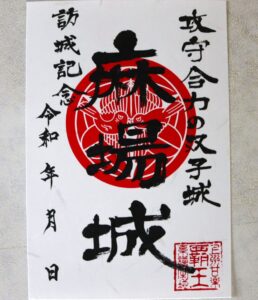 攻守合力の双子城
麻場城
訪城記念
令和 年 月 日
覇王